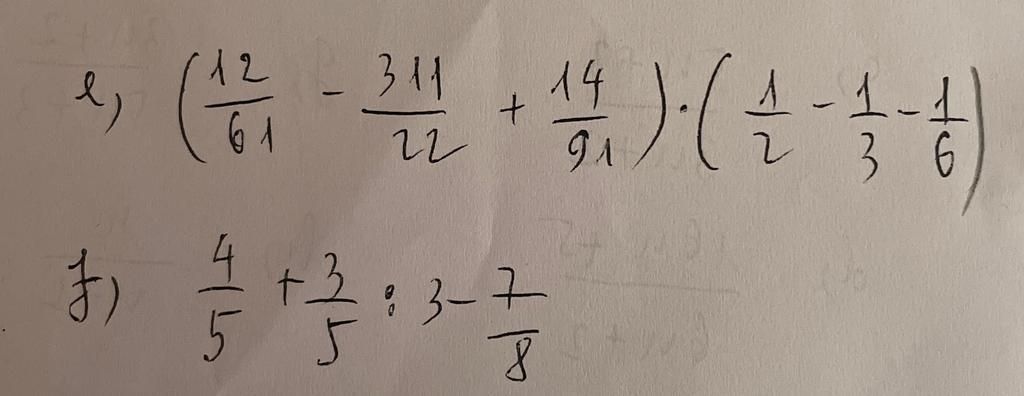 e) (12/61 - 311/22 + 14/91) · (1/2 - 1/3 - 1/6)
f) 4/5 + 3/5 : 3 - 7/8